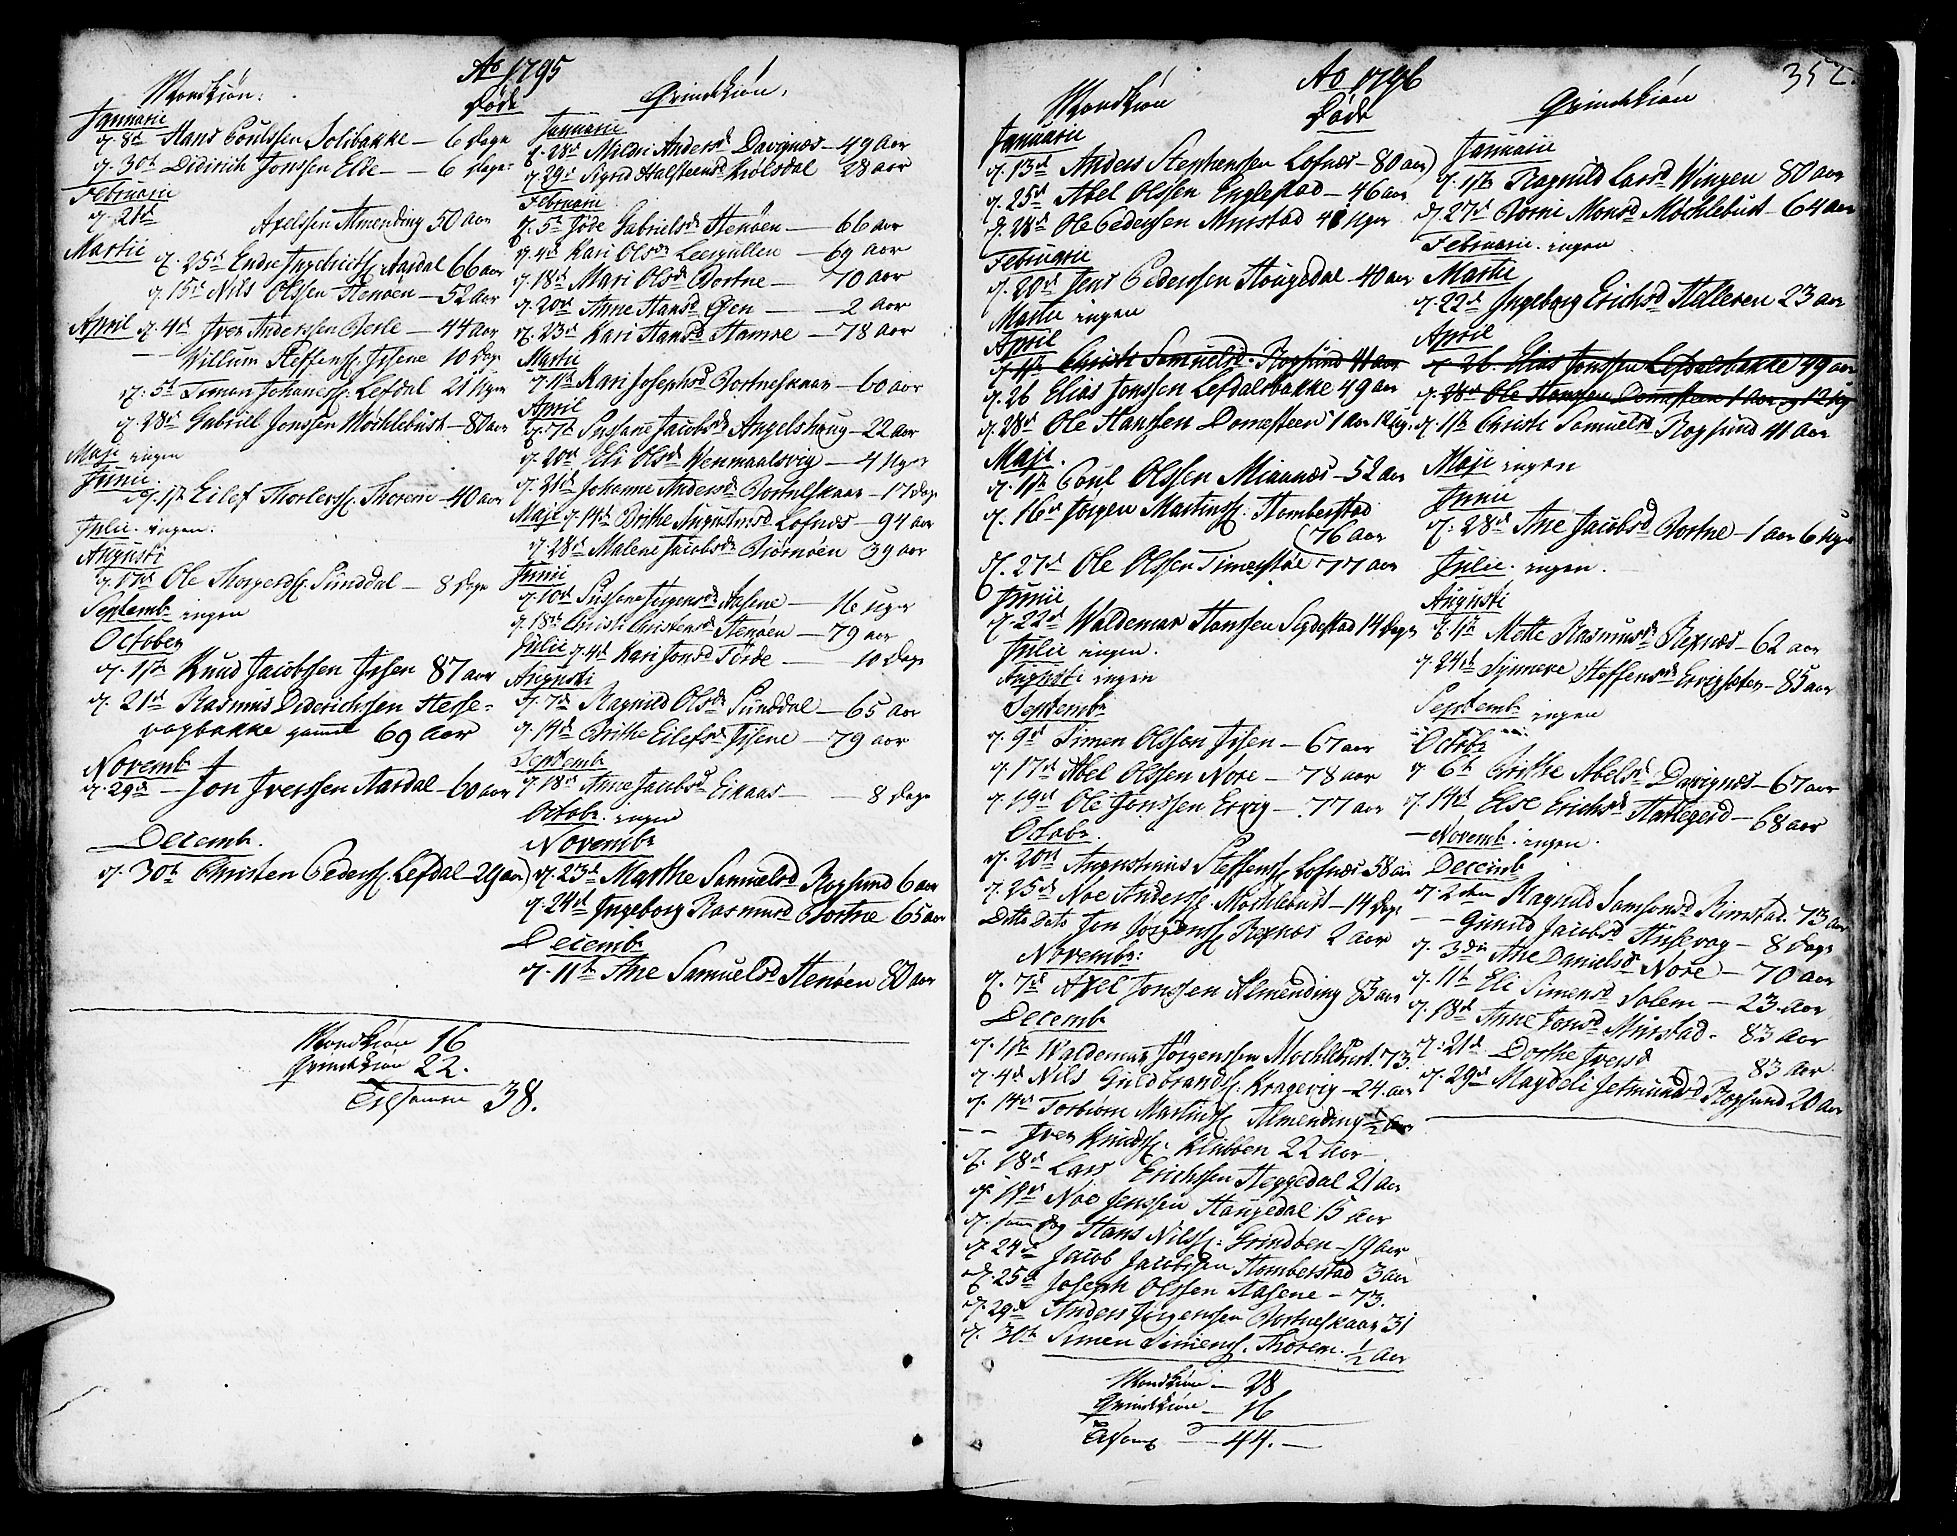 Ao 1795
Døde
Mandkiøn:
Januarii
d. 8de Hans Poulssen Solibakke — 6 Dage
d. 30te Didirich Jonssen Eide — 6 Dage
Februarii
d. 21de Axelssen Almending 50 aar
Martii d. 25de Endre Aardal 66 aar
d. 15de Nils Olssen Henøen — 52 aar
April d. 4de Iver Anderssen Berle — 44 aar
— Willum Steffens. Issene 10 Dage
d. 5te Siman Johaness. Lefdal 21 Uger
d. 28de Gabriel Jonssen Møchlebust — 80 aar
Maji ingen
Junii
d. 1ste Eilef Thorlevss. Thorem — 40 aar
Julii ingen.
Augusti
d. 17de Ole Sunddal — 8 Dage
Septembr ingen
October
d. 1ste Knud Jacobssen Issen 87 aar
d. 21de Rasmus Diderichssen Hesse-
vagbakke gamel 69 Aar
Novembr
d. 29de — Jon Iverssen Aardal — 60 aar
Decembr.
d. 30te Christen Pederss. Lefdal 29 aar
Qvindekiøn,
Januarii
d. 28de Anders D Davignæs — 49 Aar
d. 29de Sigrid Halsteens D Kiølsdal 28 aar
Februarii
d. 5te Gabriels D Henøen — 66 aar
d. 4de Kari Ols D Leergullen — 69 aar
d. 18de Mari Ols D Bortne — 70 aar
d. 20de Anne Hans D Øen — 2 aar
d. 23de Kari Hans D Hamre — 78 aar
Martii
d. 11te Kari Josephs D Bortneskaar — 60 aar
April
d. 7de Susane Jacobs D Angelshaug — 22 aar
d. 20de Eli Ols D Wenmaalsvig — 4 Uger
d. 21de Johanne Anders D Bortneskaar — 17 Dage
Maji d. 14de Brithe Augustins D Lofnæs — 94 aar
d. 28de Malene Jacobs D Biørnøen 39 aar
Junii
d. 10de Sussane Jørgens D Aasene — 16 uger
d. 18de Christi Christens D Henøen — 79 aar
Julii d. 4de Kari Jons D Førde — 10 Dage
Augusti
d. 7de Ragnild Ols D Sunddal — 65 aar
d. 14de Brithe Eilefs D Issene — 79 aar
Septembr
d. 18de Anne Jacobs D Eikaas — 8 Dage
Octobr. ingen
Novembr
d. 23de Marthe Samuels D Rogsund 6 aar
d. 24de Ingeborg Rasmus D Bortne 65 aar
Decembr
d. 11te Ane Samuels D Henøen 80 aar
Mandkiøn 16
Qvindekiøn 22.
Tilsamen 38.
352.
Ao 1796
Døde
Mandkiøn
Januarii
d. 13de Anders Stephenssen Lofnæs — 80 aar
d. 25de Abel Olssen Englestad — 46 aar
d. 28de Ole Pederssen Myrstad 4 Uger
Februarii
d. 20de Jens Pederssen Hougedal — 40 aar
Martii ingen
April
d. 1ste Christi Samuels D. Rogsund 41 aar
d. 26 Elias Jonssen Lefdalsbakke 49 aar
d. 28de Ole Hanssen Domesteen 1 Aar 12 Ug.
Maji.
d. 1ste Poul Olssen Miaanæs — 52 aar
d. 16de Jørgen Martinss. Homberstad
(76 aar
d. 27de Ole Olssen Timerstøe 77 aar
Junii
d. 22de Waldemar Hanssen 14 Dage
Julii ingen.
Augusti ingen
Septembr
d. 9de Simen Olssen Issen — 67 aar
d. 17de Abel Olssen Nore — 78 aar
d. 19de Ole Jonssen Ervig — 77 aar
Octobr.
d. 20de Augustinus Steffenss. Lofnæs 58 aar
d. 25de Noe Anderss. Møchlebust — 14 Dage
Ditto Dato Jon Jørgenss. Rexnæs 2 Aar
Novembr:
d. 7de Axel Jonssen Almending 83 aar
Decembr
d. 1ste Waldemar Jørgenssen Mochlebust. 73.
d. 4de Nils Guldbrandss. Kragevig — 24. aar
d. 14de Torbiørn Martinss. Almending ½ Aar
— Iver Knudss. Klubben 22 Aar
d. 18de Lars Erichssen Heggedal 21 aar
d. 19de Noe Jenssen Haugedal 15 Aar
d. sam dag Hans Nilss. Grindøen — 19 aar
d. 24de Jacob Jacobssen Homberstad 3 aar
d. 25de Joseph Olssen Aasene — 73.
d. 29de Anders Jørgenssen Bortneskaar 31
d. 30te Simen Simenss. Thorem. ½ Aar
Mandkiøn — 28
Qvindekiøn — 16
Tilsam — 44. —
Qvindekiøn
Januarii
d. 1ste Ragnild Lars D Wingen 80 aar
d. 27de Borni Mons D Møchlebust — 64 aar
Februarii. ingen
Martii
d. 22de Ingeborg Erichs D Helleren 23 aar
April
d. 26. Elias Jonssen Lefdalsbakke 49 aar
d. 28de Ole Hanssen Domesteen 1 Aar og 12 Ug
d. 1ste Christi Samuels D Rogsund 41 Aar
Maji ingen
Junii
d. 28de Ane Jacobs D Bortne — 1 aar 6 Uger
Julii. ingen.
Augusti
d. 1ste Mette Rasmus D Rexnæs — 62 aar
d. 24de Synneve Steffens D — 85 aar
Septembr ingen
Octobr
d. 6te Brithe Abels D Davignæs — 67 aar
d. 14de Else Erichs D — 68 aar
— Novemb. ingen.
Decembr
d. 2den Ragnild Samsons D Rimstad. 73 Aar
— Gunild Jacobs D Husevag — 8 Dage
d. 3die Ane Daniels D Nore — 70 Aar
d. 11te Eli Simens D Solem — 23. Aar
d. 18de Anne Jons D Myrstad. 83 Aar
d. 21de Dorthe Ivers D 83 Aar.
d. 29de Magdeli Jetmunds D Rogsund 20 Aar